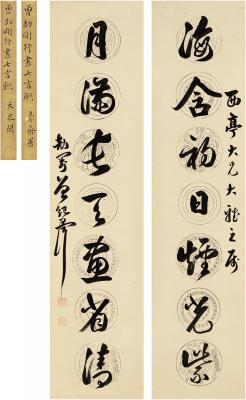 海含初日煙光紫
西亭大兄大雅之屬
月滿長天畫省清
劼剛曾紀澤
曾劼剛行書七言聯
曾劼剛行書七言聯